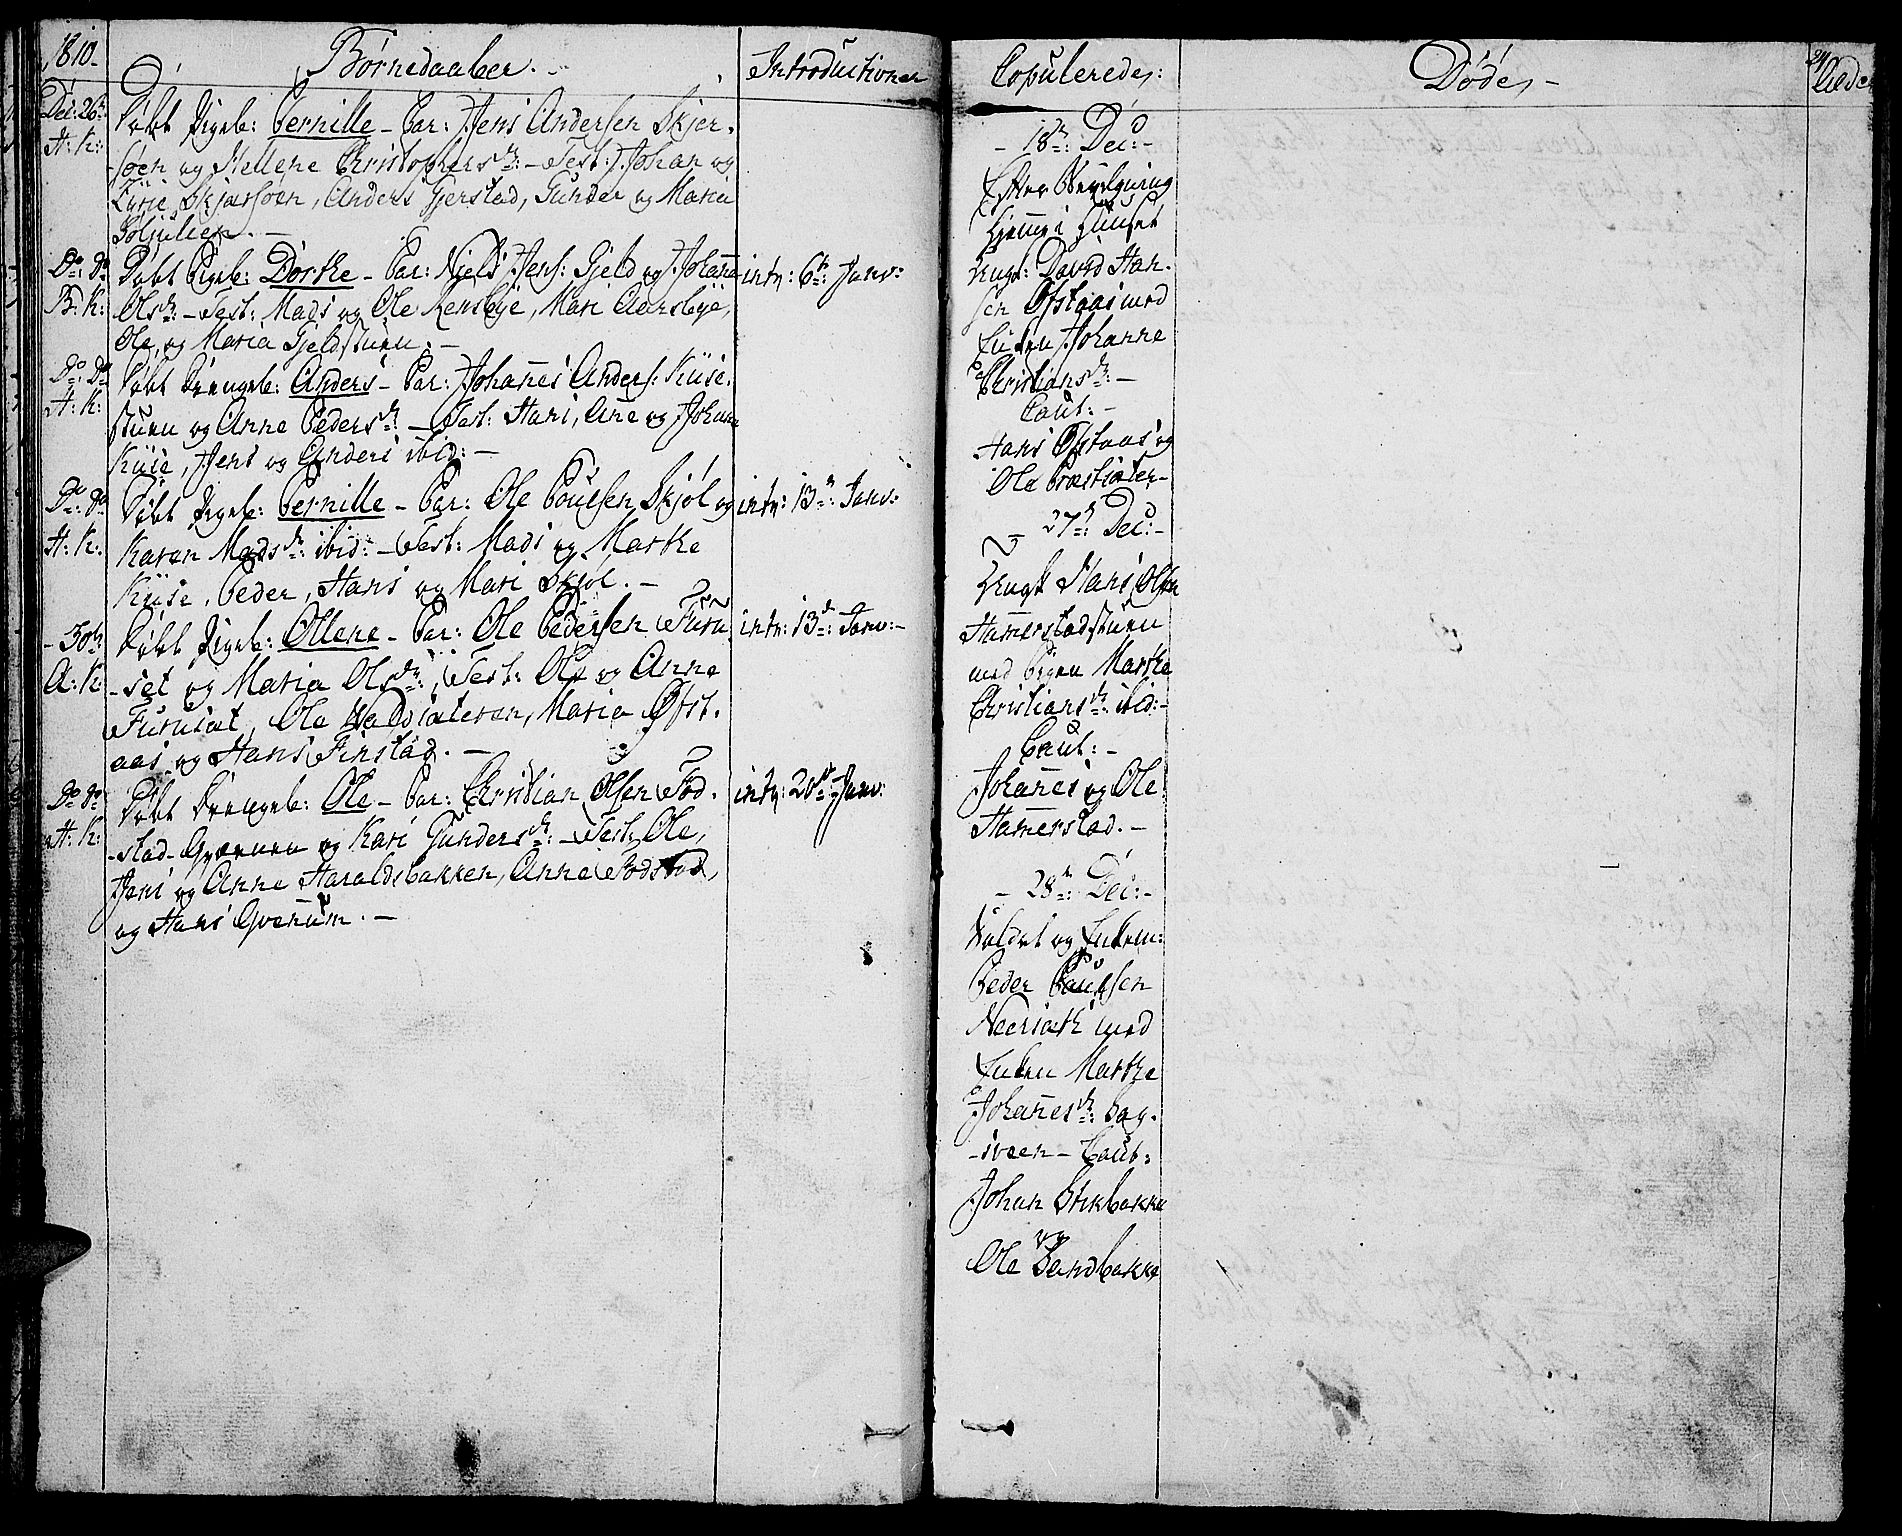 1810.
Børnedaaber.
Introductioner
Dec: 26de
H: K:
Døbt Pigeb: Pernille - Par: Jens Andersen Skjer-
søen og Hellene Christophersdr: - Test: Johan og
Kirie Skjærsøen, Anders Gjerstad, Gunder og Maria
Do: Do
B: K:
Døbt Pigeb: Dorthe - Par: Niels Jens: Gjeld og Johanne
Olsdr: - Test: Mads og Ole Rensbye, Mari Aarsbye,
Ole og Maria Gjeldstuen. -
intr: 6te: Janv:
Do: Do
H: K:
Døbt Drengeb: Anders - Par: Johannes Anders: Küse-
stuen og Anne Pedersdr: - Test: Hans, Ane og Johan
Küse, Jens og Anders ibid: -
Do: Do
H: K:
Døbt Pigeb: Pernille - Par: Ole Poulsen Skjøl og
Karen Madsdr: ibid: - Test: Mads og Marthe
Küse, Peder, Hans og Mari Skjøl. -
intr: 13de: Janv:
- 30te
A: K:
Døbt Pigeb: Ollene - Par: Ole Pedersen Furu-
-set og Maria Olsdr:, Test: Ole og Anne
Furuset, Ole Waldsæteren, Maria Ofst-
aas og Hans Finstad. -
intr: 13de: Janv: -
Do Do
H: K:
Døbt Drengeb: Ole - Par: Christian Olsen Fod-
-stad-Qvernen og Kari Gundersdr: - Test: Ole,
Jens og Anne Haraldsbakken, Anne Fodstad,
og Hans Qvernum. -
intr: 20de Janv:
Copulerede:
- 18de: Dec: -
Efter Bevilgning
hjemme i Huuset
Ungk: David Han-
sen Ofstaas med
Enken Johanne
Christiansdr: -
Caut: -
Hans Ofstaas og
Ole Præstsæter-
- 27de: Dec: -
Ungk Hans Olsen
Hamerstadstuen
med Pigen Marthe
Christiansdr: ibid: -
Caut: -
Johannes og Ole
Hamerstad. -
- 28de: Dec: -
Soldat og Enkem:
Peder Poulsen
Neersæth med
Enken Marthe
Johannesdr: Bag-
-sveen - Caut:
Johan Stikbakke
og
Ole Sandbakke
Døde -
24